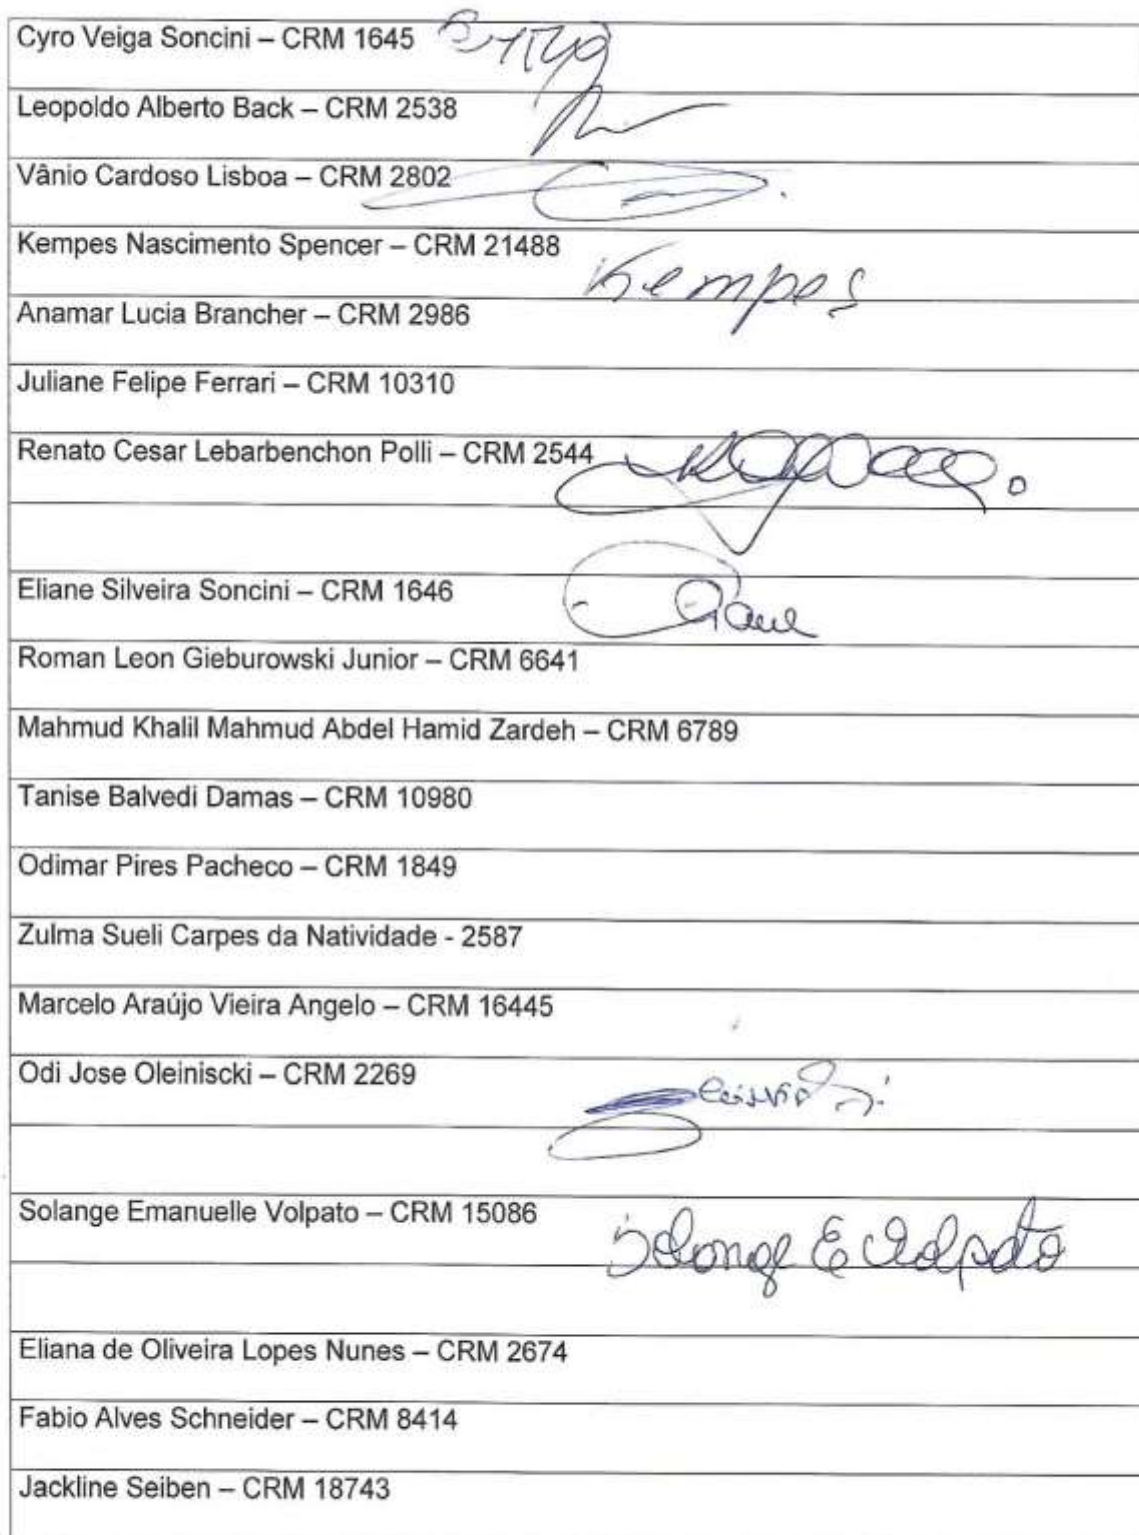 Cyro Veiga Soncini – CRM 1645
Leopoldo Alberto Back – CRM 2538
Vânio Cardoso Lisboa – CRM 2802
Kempes Nascimento Spencer – CRM 21488
Kempes
Anamar Lucia Brancher – CRM 2986
Juliane Felipe Ferrari – CRM 10310
Renato Cesar Lebarbenchon Polli – CRM 2544
Eliane Silveira Soncini – CRM 1646
Roman Leon Gieburowski Junior – CRM 6641
Mahmud Khalil Mahmud Abdel Hamid Zardeh – CRM 6789
Tanise Balvedi Damas – CRM 10980
Odimar Pires Pacheco – CRM 1849
Zulma Sueli Carpes da Natividade - 2587
Marcelo Araújo Vieira Angelo – CRM 16445
Odi Jose Oleiniscki – CRM 2269
Solange Emanuelle Volpato – CRM 15086
Solange E Volpato
Eliana de Oliveira Lopes Nunes – CRM 2674
Fabio Alves Schneider – CRM 8414
Jackline Seiben – CRM 18743